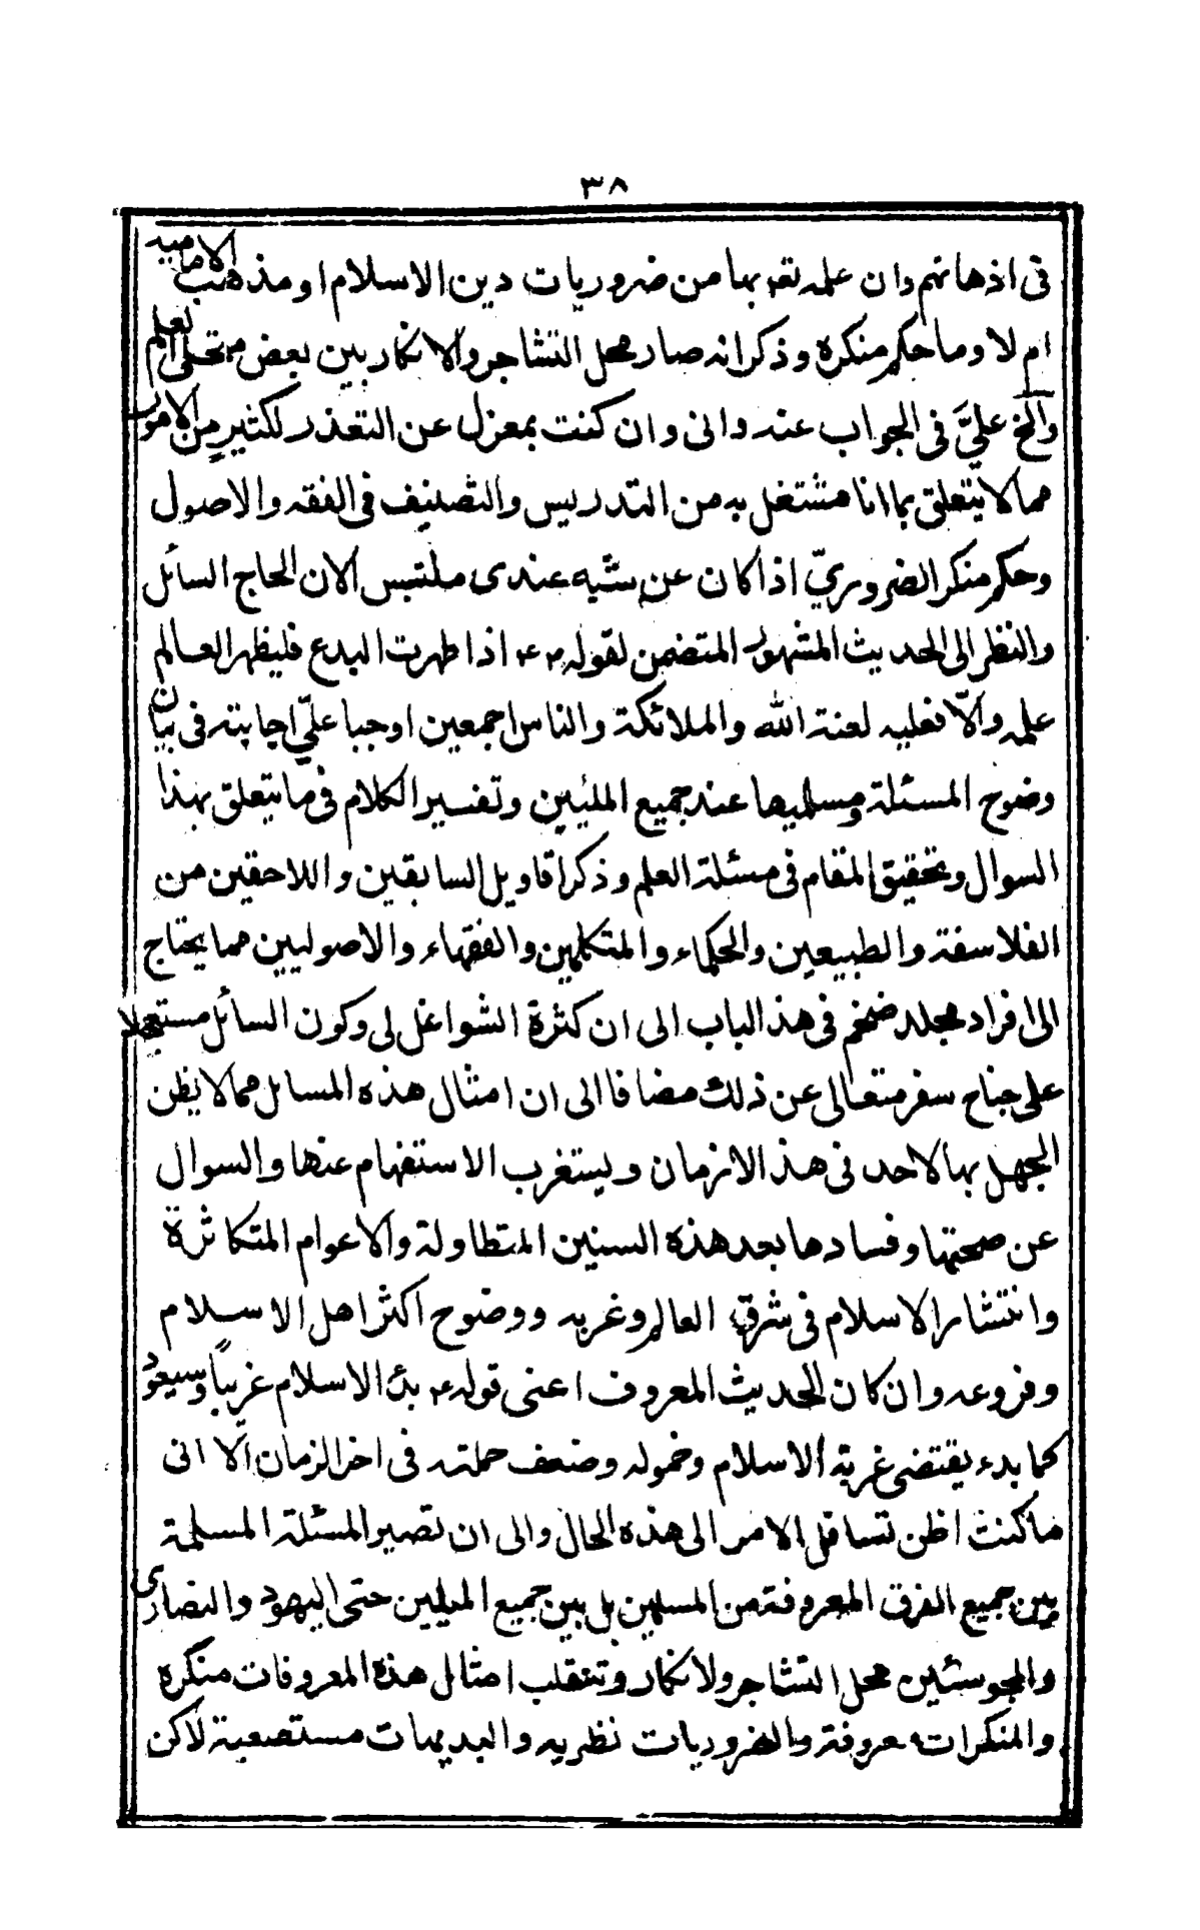 ٣٨
فى اذهانهم وان علمه تعم بها من ضروريات دين الاسلام او مذهب الامامية
ام لا وما حكم منكره وذكر انه صار محل التشاجر والانكار بين بعض منتحلى العلم
والخ علىَّ فى الجواب عنه وانى وان كنت بمعزل عن التعذر لكثير من الامور
مما لا يتعلق بما انا مشتغل به من التدريس والتصنيف فى الفقه والاصول
وحكم منكر الضروريّ اذا كان عن شبه عندى ملتبس الا ان الحاج السائل
والنظر الى الحديث المشهور المتضمن لقوله ص ع اذا ظهرت البدع فليظهر العالم
علمه والّا فعليه لعنة الله والملائكة والناس اجمعين اوجبا علىّ اجابته فى بيان
وضوح المسئلة ومسلميها عند جميع المليين وتفسير الكلام فى ما يتعلق بهذا
السوال وتحقيق المقام فى مسئلة العلم وذكر اقاويل السابقين واللاحقين من
الفلاسفة والطبيعين والحكماء والمتكلمين والفقهاء والاصوليين مما يحتاج
الى افراد مجلد ضخم فى هذ الباب الى ان كثرة الشواغل لى وكون السائل مستعجلا
على جناح سفر متعالى عن ذلك مضافا الى ان امثال هذه المسايل مما لا يظن
الجهل بها لاحد فى هذ الازمان ويستغرب الاستفهام عنها والسوال
عن صحتها وفسادها بعد هذه السنين المتطاولة والاعوام المتكاثرة
وانتشار الاسلام فى شرق العالم وغربه ووضوح اكثر اهل الاسلام
وفروعه وان كان الحديث المعروف اعنى قوله ع بدئ الاسلام غريباً وسيعود
كما بدء يقتضى غربة الاسلام وخموله وضعف حملته فى اخر الزمان الّا انى
ما كنت اظن تساقل الامر الى هذه الحال والى ان تصير المسئلة المسلمة
بين جميع الفرق المعروفة من المسلمين بل بين جميع المليين حتى اليهود والنصارى
والمجوسئين محل التشاجر ولانكار وتنقلب امثال هذه المعروفات منكره
والمنكرات معروفة والضروريات نظريه والبديهات مستصعبة لاكن